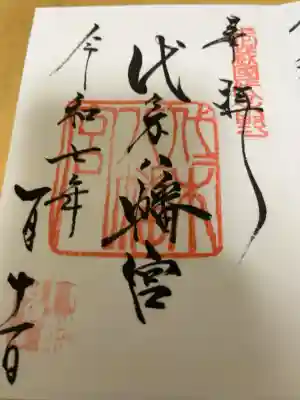 奉拝
代々木八幡宮
令和七年
一月十一日